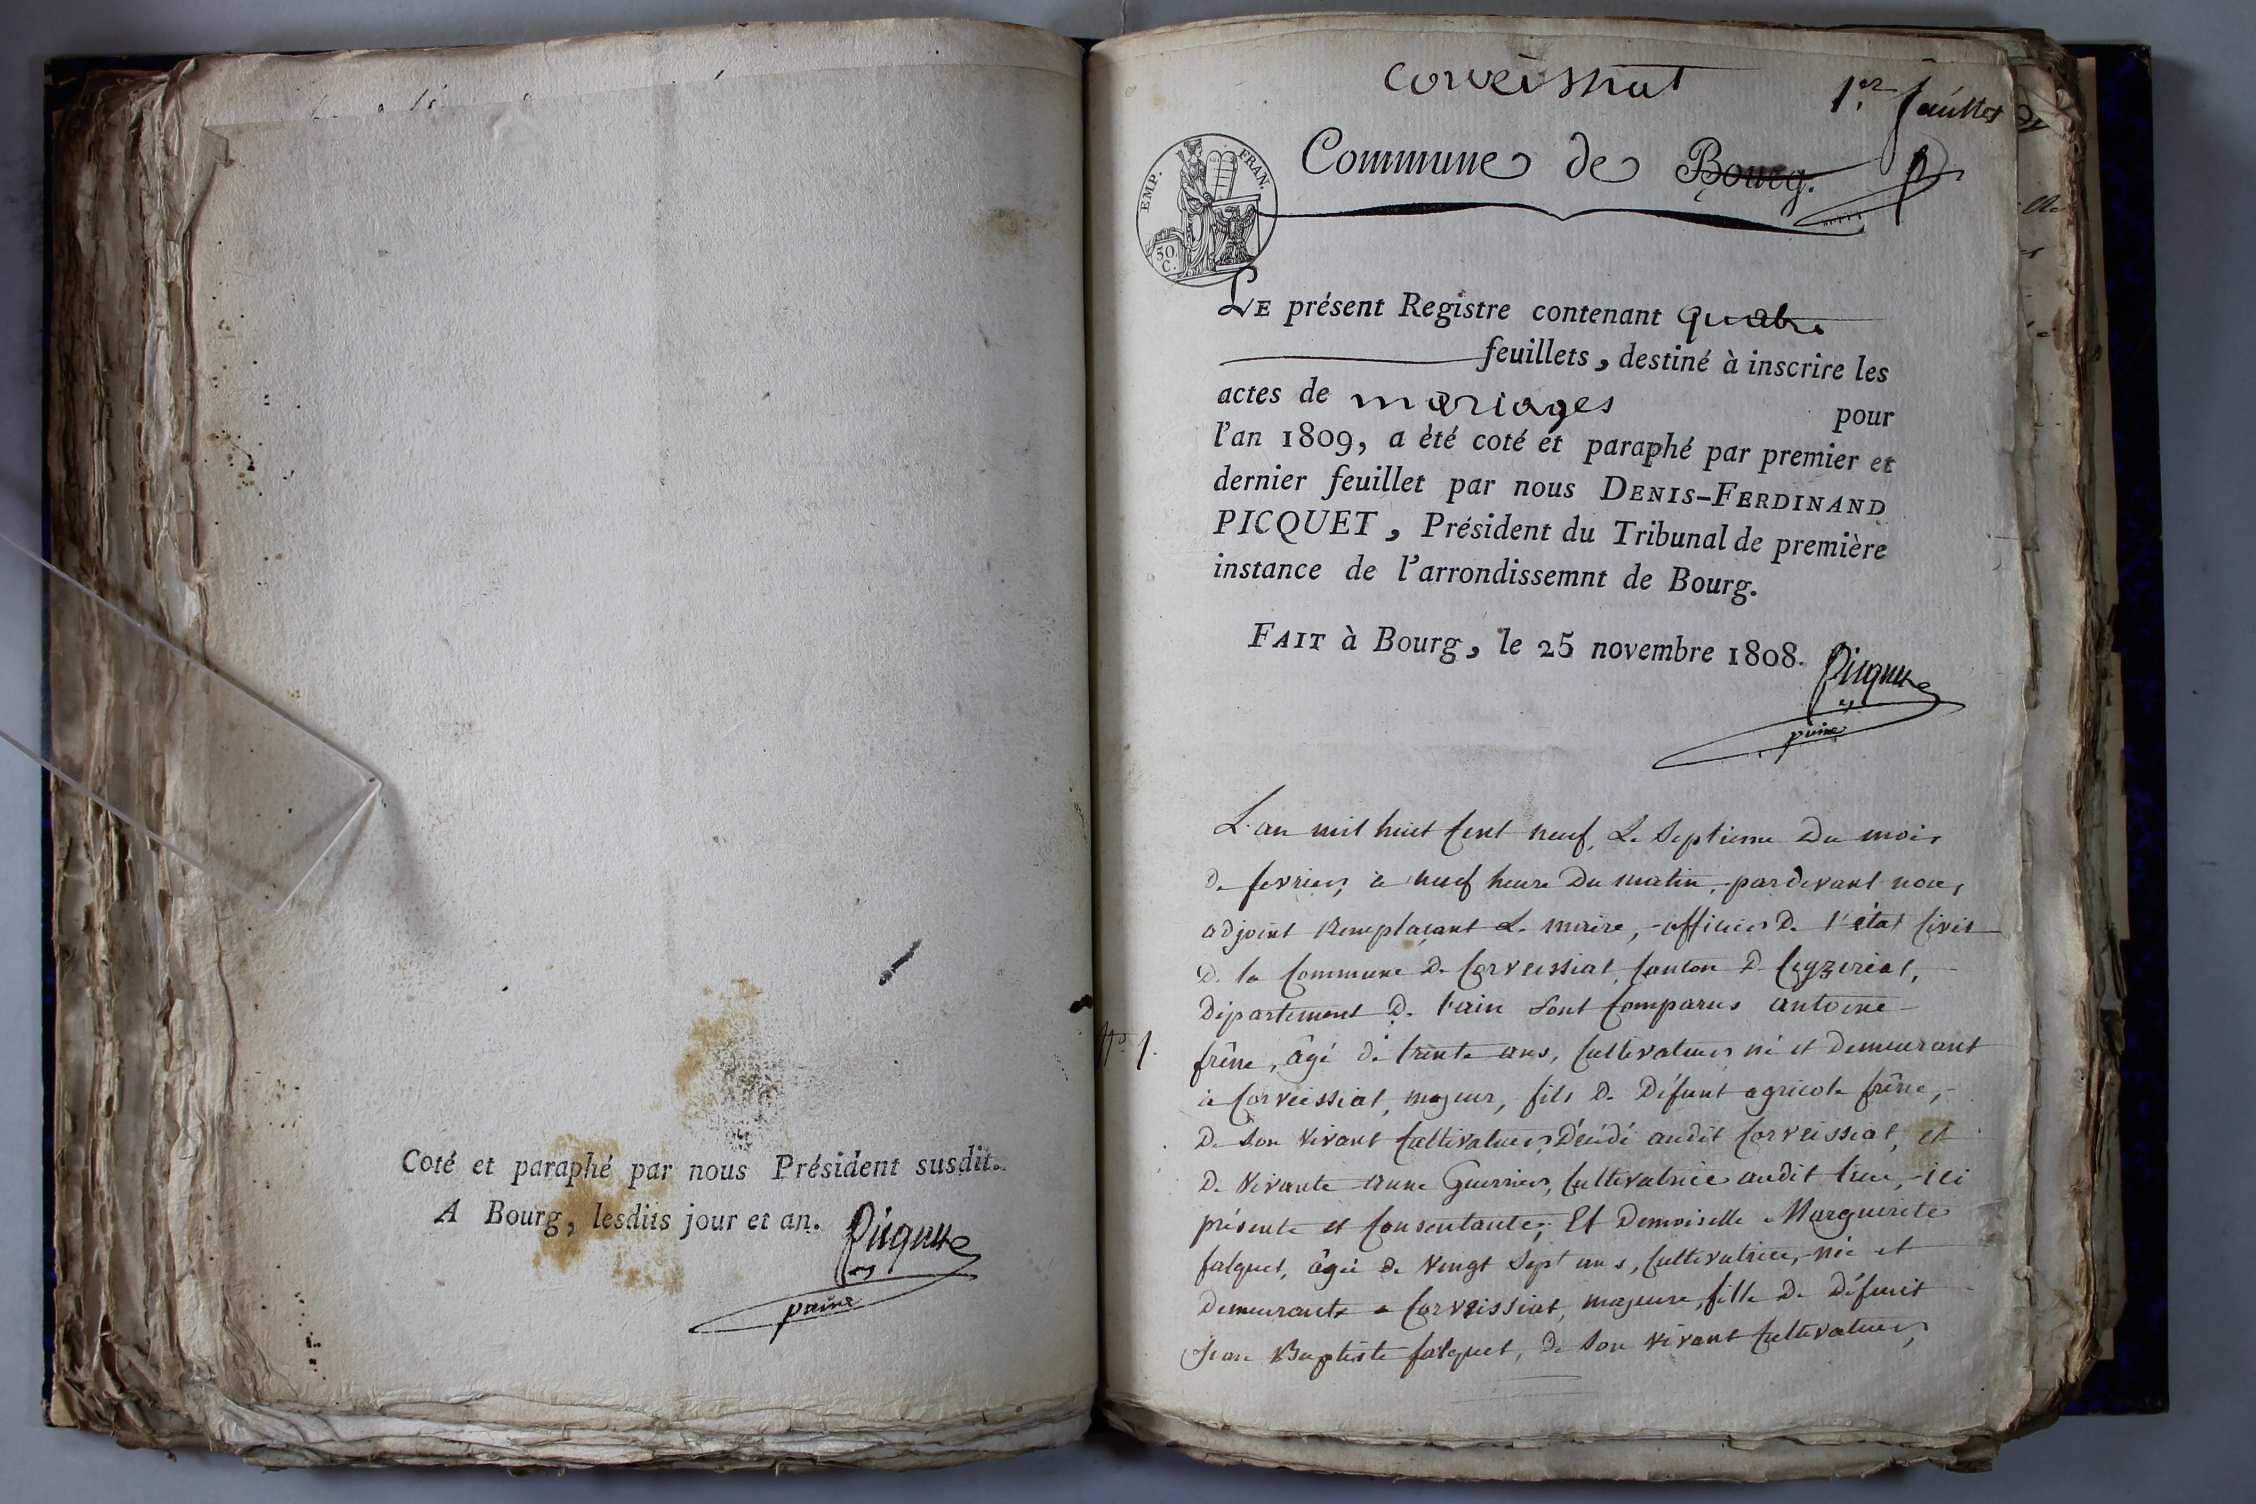 Coté et paraphé par nous Président susdit.
A Bourg, lesdits jour et an.
Picquet
prine
Corveissiat
1.er feuillet
EMP. FRAN.
50 C.
Commune de Bourg.
LE présent Registre contenant quatre
feuillets, destiné à inscrire les
actes de mariages pour
l'an 1809, a été coté et paraphé par premier et
dernier feuillet par nous DENIS-FERDINAND
PICQUET, Président du Tribunal de première
instance de l'arrondissemnt de Bourg.
FAIT à Bourg, le 25 novembre 1808.
Picquet
prine
L'an mil huit Cent neuf, Le Septieme Du mois
De fevrier, à neuf heure Du matin, pardevant nous,
adjoint Remplaçant Le maire, officier De l'état Civil
De la Commune De Corveissiat Canton De Ceyzeriat,
Département De l'ain Sont Comparus antoine
N.o 1.
frêne, âgé de trente ans, Cultivateur né et Demeurant
à Corveissiat, majeur, fils De Défunt agricole frêne,
De Son vivant Cultivateur, Décédé audit Corveissiat, et
De vivante anne Guerrier, Cultivatrice audit lieu, ici
présente et Consentante; Et Demoiselle Marguerite
falquet, âgée de vingt Sept ans, Cultivatrice, née et
Demeurante a Corveissiat, majeure, fille De Défunt
Jean Baptiste falquet, De Son vivant Cultivateur,